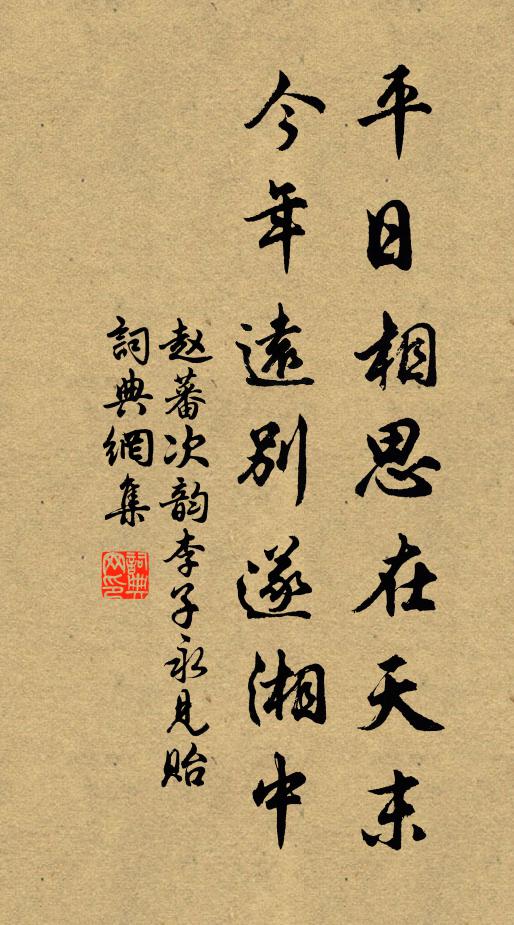 平日相思在天末
今年遠別遂湘中
赵蕃次韵李子永見貽
詞典網集
詞典
网印